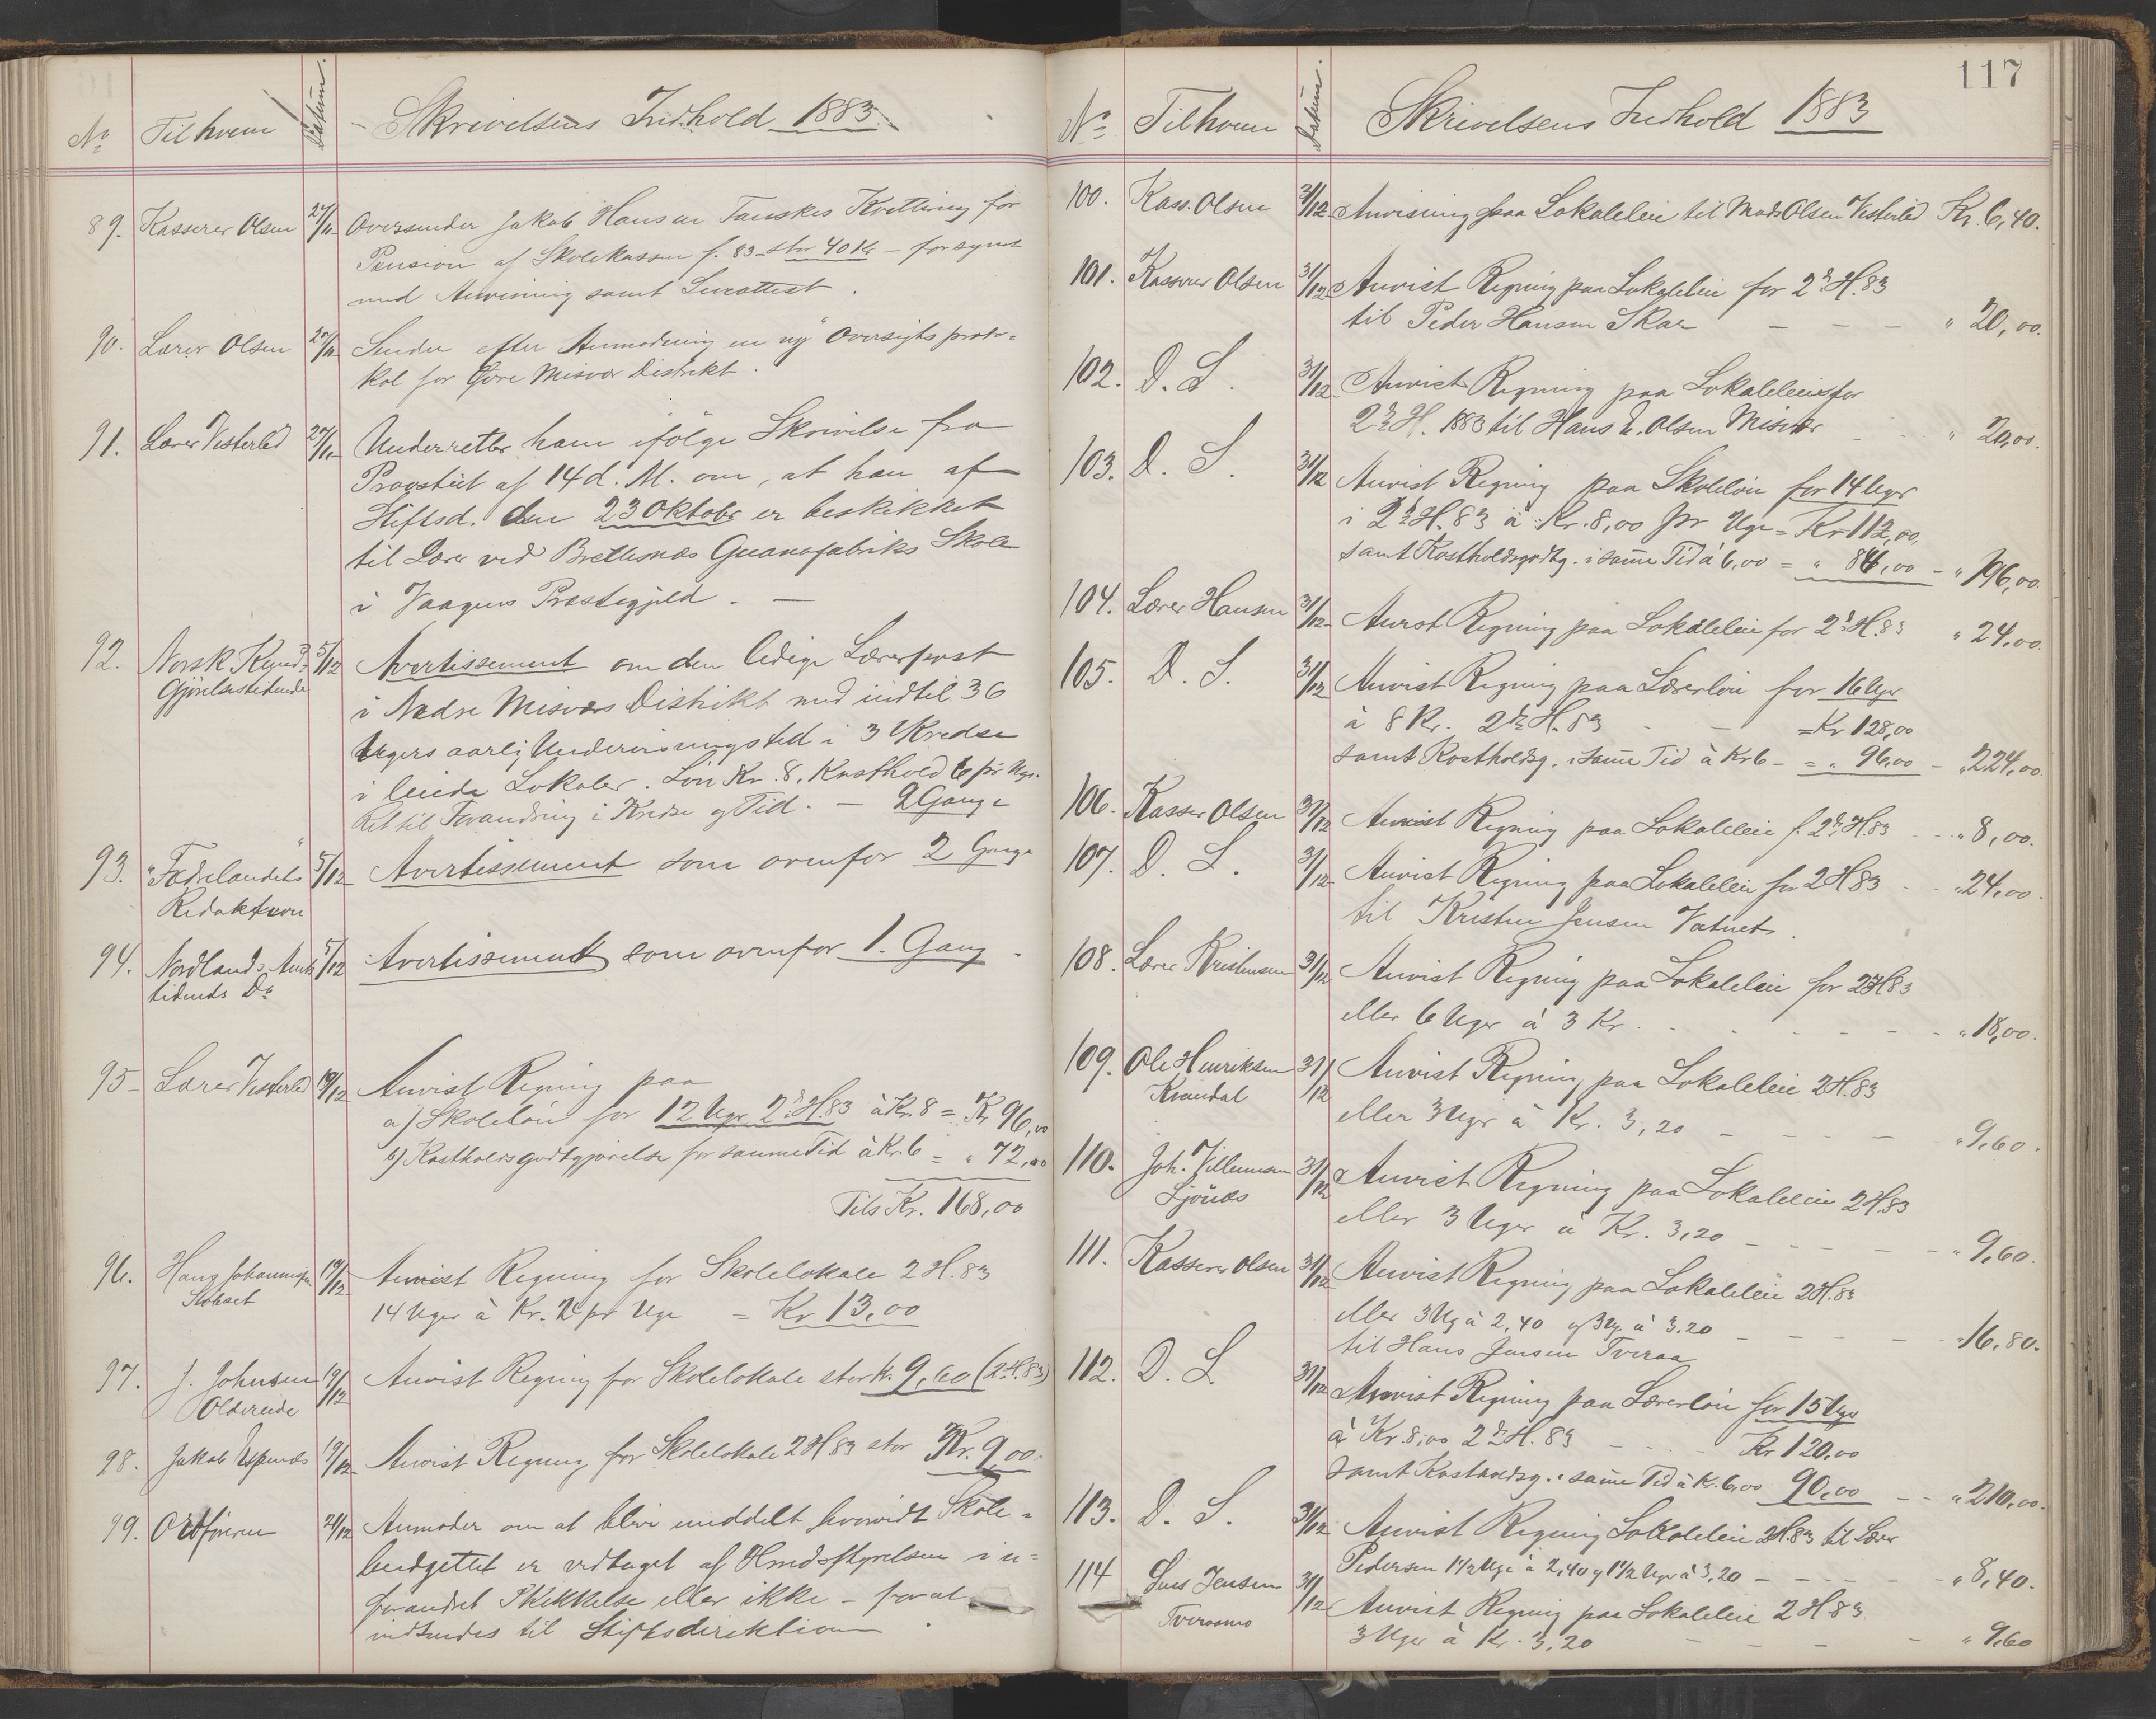 No Til hvem Datum. Skrivelsens Indhold 1883.
89. Kasserer Olsen 27/11 Oversender Jakob Hansen Tanskes Kvittering for
Pension af Skolekassen f. 83 stor 40 Kr – forsynt
med Anvisning samt Leveattest.
90. Lærer Olsen 27/11 Sender efter Anmodning en ny Oversigtsproto-
kol for Øvre Misvær Distrikt.
91. Lærer Vesterlid 27/11 Underretter ham ifølge Skrivelse fra
Provstiet af 14 d. M. om, at han af
Stiftsd. den 23 Oktobr er beskikket
til Lærer ved Brettesnæs Guanofabriks Skole
i Vaagens Præstegjeld. –
92. Norsk Kund- 5/12 Avertissement om den ledige Lærerpost
Gjörelsestidende i Nedre Misvær Distrikt med indtil 36
Ugers aarlig Undervisningstid i 3 Kredse
i leiede Lokaler. Løn Kr. 8, Kosthold 6 pr Uge.
Ret til Forandring i Kredse og Tid. – 2 Gange
93. "Fædrelandets" 5/12 Avertissement som ovenfor 2 Gange
Redaktion
94. Nordlands Amts 5/12 Avertissement som ovenfor 1. Gang.
tidende Do
95 Lærer Vesterlid 19/12 Anvist Regning paa
a) Skoleløn for 12 Uger 2d H. 83 à Kr. 8 = Kr 96,00
b) Kostholdsgodtgjørelse for samme Tid à Kr. 6 = " 72,00
Tils Kr. 168,00
96. Hans Johannesen 19/12 Anvist Regning for Skolelokale 2 H. 83
14 Uger à Kr. pr Uge = Kr 13,00
97. J. Johnsen 19/12 Anvist Regning for Skolelokale stor k. 9,60 (2 H. 83)
Oldereide
98. Jakob Espenæs 19/12 Anvist Regning for Skolelokale 2 H 83 stor Kr. 9,00.
99. Ordføreren 21/12 Anmoder om at blive meddelt hvorvidt Skole-
budgettet er vedtaget af Hrredsstyrelsen i u-
forandret Skikkelse eller ikke – for at
indsendes til Stiftsdirektionen.
117
No Til hvem Datum. Skrivelsens Indhold 1883
100. Kass. Olsen 31/12 Anvisning paa Lokaleleie til Mads Olsen Vesterlid Kr. 6,40.
101. Kasserer Olsen 31/12 Anvist Regning paa Lokaleleie for 2d H. 83
til Peder Hansen Skar – – – " 20,00.
102. D. S. 31/12 Anvist Regning paa Lokaleleie for
2d H. 1883 til Hans E. Olsen Misvær " 20,00.
103. D. S. 31/12 Anvist Regning paa Skoleløn for 14 Uger
i 2d H. 83 à Kr. 8,00 pr Uge = Kr 112,00
samt Kostholdsgodtg. i samme Tid à 6,00 = " 84,00 – " 196,00.
104. Lærer Hansen 31/12 Anvist Regning paa Lokaleleie for 2d H. 83 " 24,00.
105. D. S. 31/12 Anvist Regning paa Lærerløn for 16 Uger
à 8 Kr. 2d H. 83 – = Kr 128,00
samt Kostholdsg. i samme Tid à Kr 6 – = " 96,00 – " 224,00.
106. Kasser Olsen 31/12 Anvist Regning paa Lokaleleie f. 2d H. 83 " 8,00.
107. D. S. 31/12 Anvist Regning paa Lokaleleie for 2 H 83 " 24,00.
til Kristen Jensen Vatnet.
108. Lærer Kristensen 31/12 Anvist Regning paa Lokaleleie for 2 H 83
eller 6 Uger à 3 Kr. – – – " 18,00.
109. Ole Henriksen 31/12 Anvist Regning paa Lokaleleie 2 H. 83
Kvændal eller 3 Uger à Kr. 3,20 – – – " 9,60.
110. Joh. Villumsen 31/12 Anvist Regning paa Lokaleleie 2 H. 83
Ljönes eller 3 Uger à Kr. 3,20 – – – " 9,60.
111. Kasserer Olsen 31/12 Anvist Regning paa Lokaleleie 2 H. 83
eller 3 Ug à 2,40 og 3 Ug à 3.20 – – – " 16,80.
til Hans Jensen Tveraa
112. D. S. 31/12 Anvist Regning paa Lærerløn for 15 Uger
à Kr. 8,00 2d H. 83 – Kr 120,00
samt Kostholdsg. i samme Tid à Kr. 6,00 90,00 – – " 210,00.
113. D. S. 31/12 Anvist Regning Lokaleleie 2 H. 83 til Lærer
Pedersen 1 1/2 Uge à 2,40 og 1 1/2 Uge à 3,20 – – – " 8,40.
114 Jensen 31/12 Anvist Regning paa Lokaleleie 2 H 83
Tveraamo 3 Uger à Kr. 3,20 – – – " 9,60